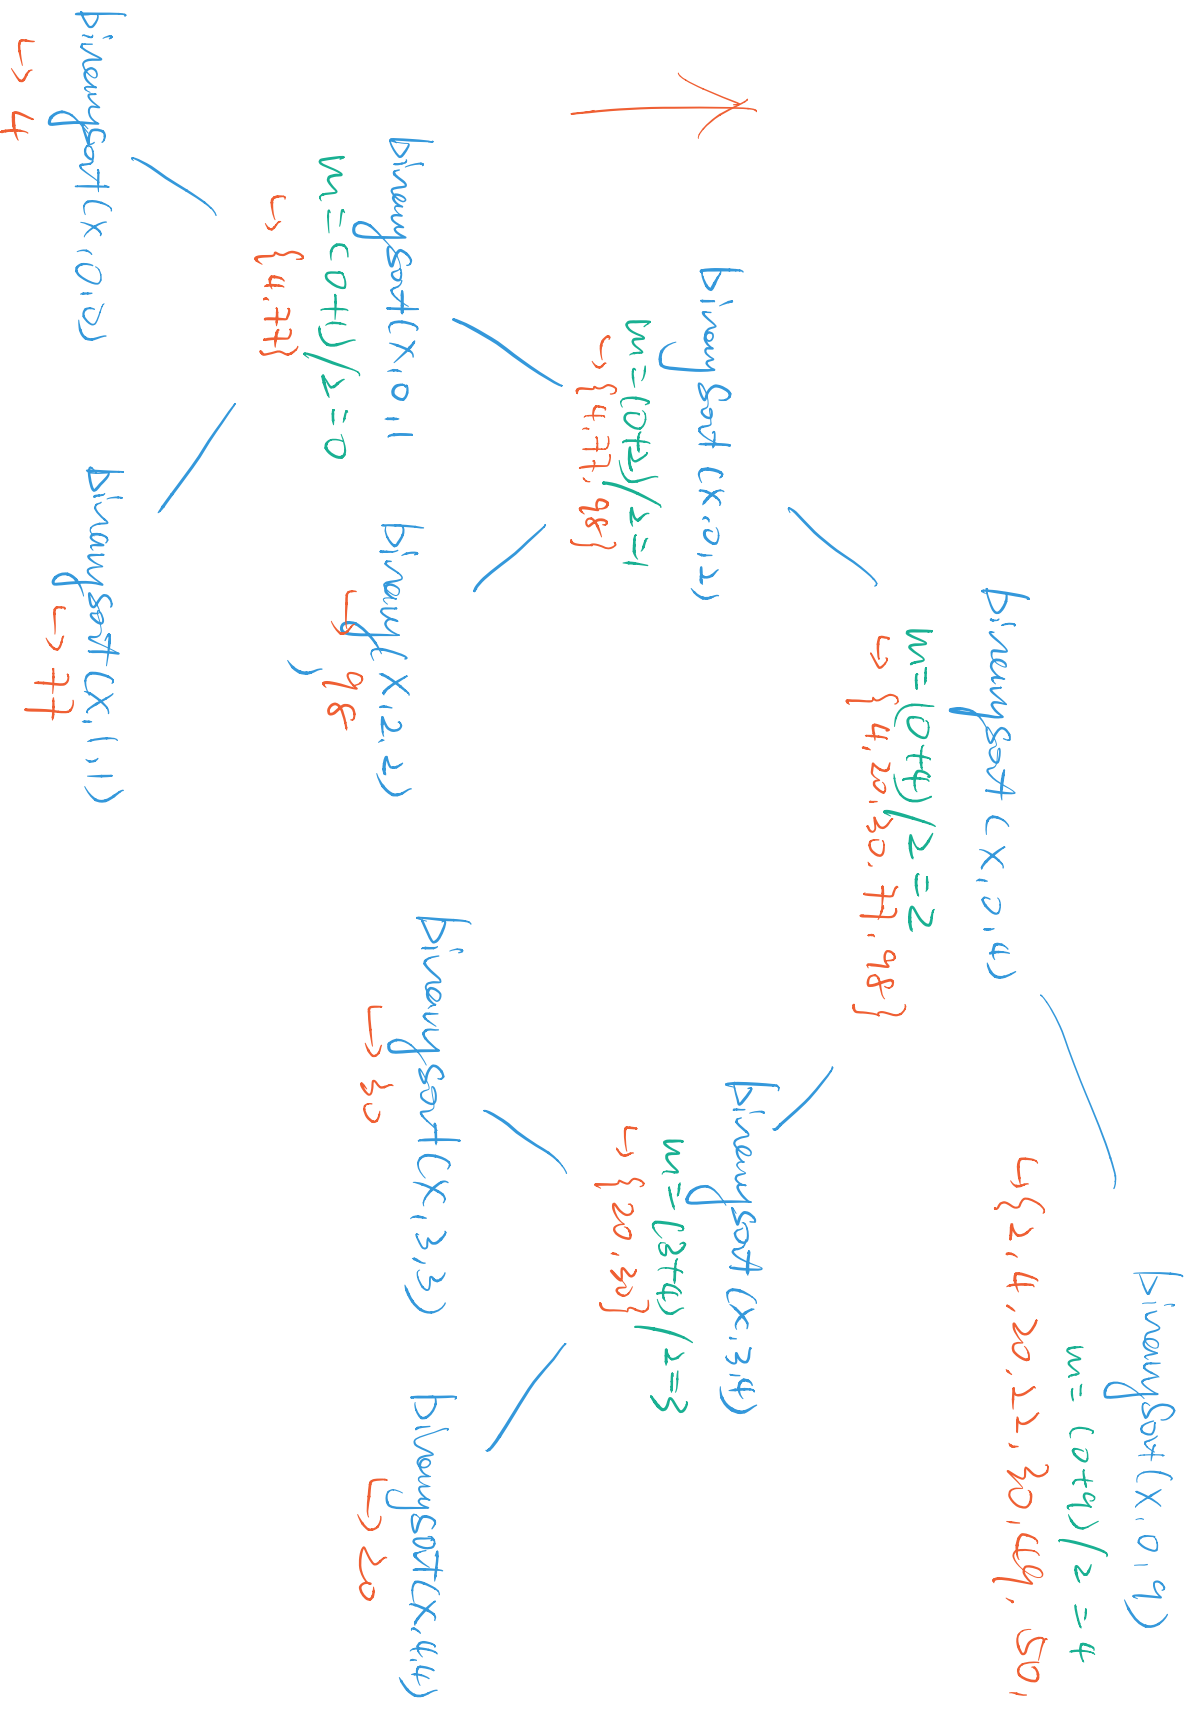 binarysort(x,0,9)
m=(0+9)/2=4
↳{2,4,20,22,30,49,50,
binarysort(x,0,4)
m=(0+4)/2=2
↳{4,20,30,77,98}
binarysort(x,0,2)
m=(0+2)/2=1
↳{4,77,98}
binarysort(x,3,4)
m=(3+4)/2=3
↳{20,30}
binarysort(x,0,1
m=(0+1)/2=0
↳{4,77}
binary(x,2,2)
↳98
binarysort(x,3,3)
↳30
binarysort(x,4,4)
↳20
binarysort(x,0,0)
↳4
binarysort(x,1,1)
↳77